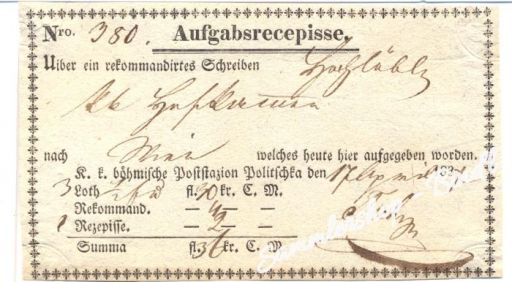 Nro. 380. Aufgabsrecepisse.
Uiber ein rekommandirtes Schreiben Hochlöbl
kk Hofkammer
nach Wien welches heute hier aufgegeben worden.
K. k. böhmische Poststazion Politschka den 17 April
3 Loth fl. 30 kr. C. M.
Rekommand. — 4 —
Rezepisse. — 2 —
Summa fl. 36 kr. C. M.
Sammlerskon